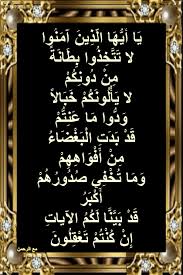 يَا أَيُّهَا الَّذِينَ آمَنُوا
لَا تَتَّخِذُوا بِطَانَةً
مِنْ دُونِكُمْ
لَا يَأْلُونَكُمْ خَبَالًا
وَدُّوا مَا عَنِتُّمْ
قَدْ بَدَتِ الْبَغْضَاءُ
مِنْ أَفْوَاهِهِمْ
وَمَا تُخْفِي صُدُورُهُمْ
أَكْبَرُ
قَدْ بَيَّنَّا لَكُمُ الْآيَاتِ
إِنْ كُنْتُمْ تَعْقِلُونَ
مع الرحمن